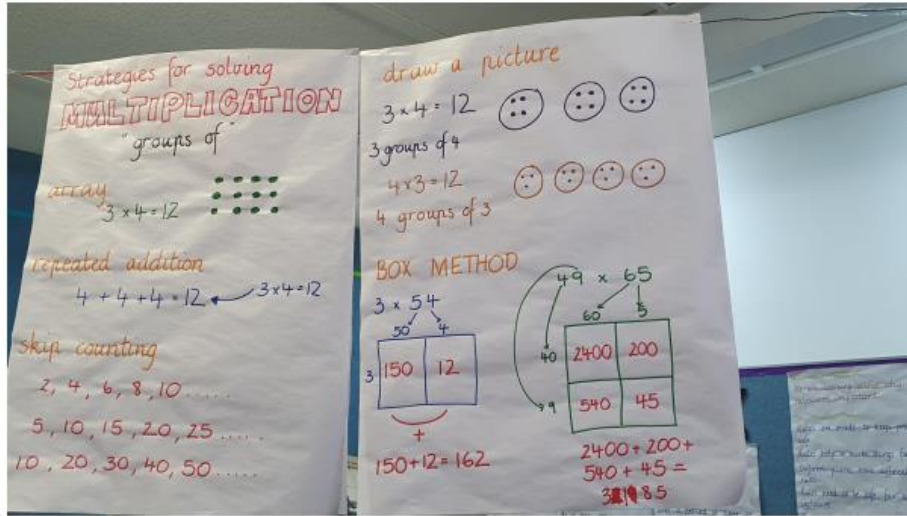 Strategies for solving
MULTIPLICATION
"groups of"
array
3 x 4 = 12
repeated addition
4 + 4 + 4 = 12
3 x 4 = 12
skip counting
2, 4, 6, 8, 10 .....
5, 10, 15, 20, 25 .....
10, 20, 30, 40, 50 .....
draw a picture
3 x 4 = 12
3 groups of 4
4 x 3 = 12
4 groups of 3
BOX METHOD
3 x 54
50 4
3 150 12
+
150 + 12 = 162
49 x 65
60 5
40 2400 200
9 540 45
2400 + 200 +
540 + 45 =